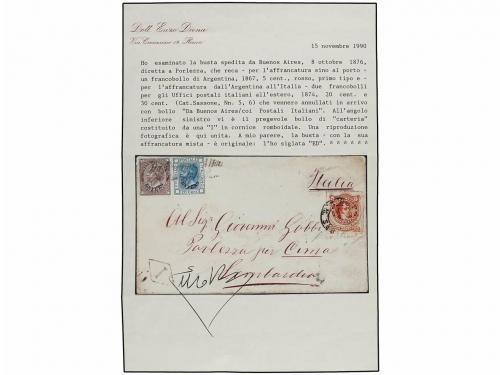 Dott. Enzo Diena
Via Crescenzio 19. Roma
15 novembre 1990
Ho esaminato la busta spedita da Buenos Aires, 8 ottobre 1876,
diretta a Porlezza, che reca - per l'affrancatura sino al porto -
un francobollo di Argentina, 1867, 5 cent., rosso, primo tipo e -
per l'affrancatura dall'Argentina all'Italia - due francobolli
per gli Uffici postali italiani all'estero, 1874, 20 cent. e
30 cent. (Cat.Sassone, Nn. 5, 6) che vennero annullati in arrivo
non bollo "Da Buenos Aires/coi Postali Italiani". All'angolo
inferiore sinistro vi è il pregevole bollo di "carteria"
costituito da una "I" in cornice romboidale. Una riproduzione
fotografica è qui unita. A mio parere, la busta - con la sua
affrancatura mista - è originale: l'ho siglata "ED".
Italia
Al Sigr Giovanni Gobbi
Porlezza per Cima
Lombardia